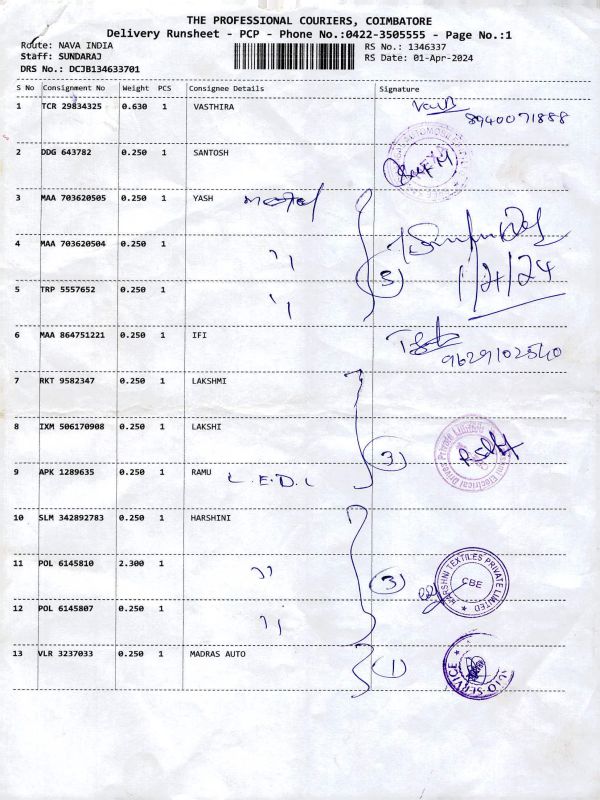 THE PROFESSIONAL COURIERS, COIMBATORE
Delivery Runsheet - PCP - Phone No.:0422-3505555 - Page No.:1
Route: NAVA INDIA
RS No.: 1346337
Staff: SUNDARAJ
RS Date: 01-Apr-2024
DRS No.: DCJB134633701
S No Consignment No Weight PCS Consignee Details Signature
1 TCR 29834325 0.630 1 VASTHIRA
8940071888
2 DDG 643782 0.250 1 SANTOSH
3 MAA 703620505 0.250 1 YASH
4 MAA 703620504 0.250 1 "
(3)
1/4/24
5 TRP 5557652 0.250 1 "
6 MAA 864751221 0.250 1 IFI
9629102540
7 RKT 9582347 0.250 1 LAKSHMI
8 IXM 506170908 0.250 1 LAKSHI
(3)
Electrical Drives Private Limited
9 APK 1289635 0.250 1 RAMU L.E.D.L
10 SLM 342892783 0.250 1 HARSHINI
11 POL 6145810 2.300 1 "
(3)
HARSHNI TEXTILES PRIVATE LIMITED
CBE
12 POL 6145807 0.250 1 "
13 VLR 3237033 0.250 1 MADRAS AUTO
(1)
AUTO SERVICE